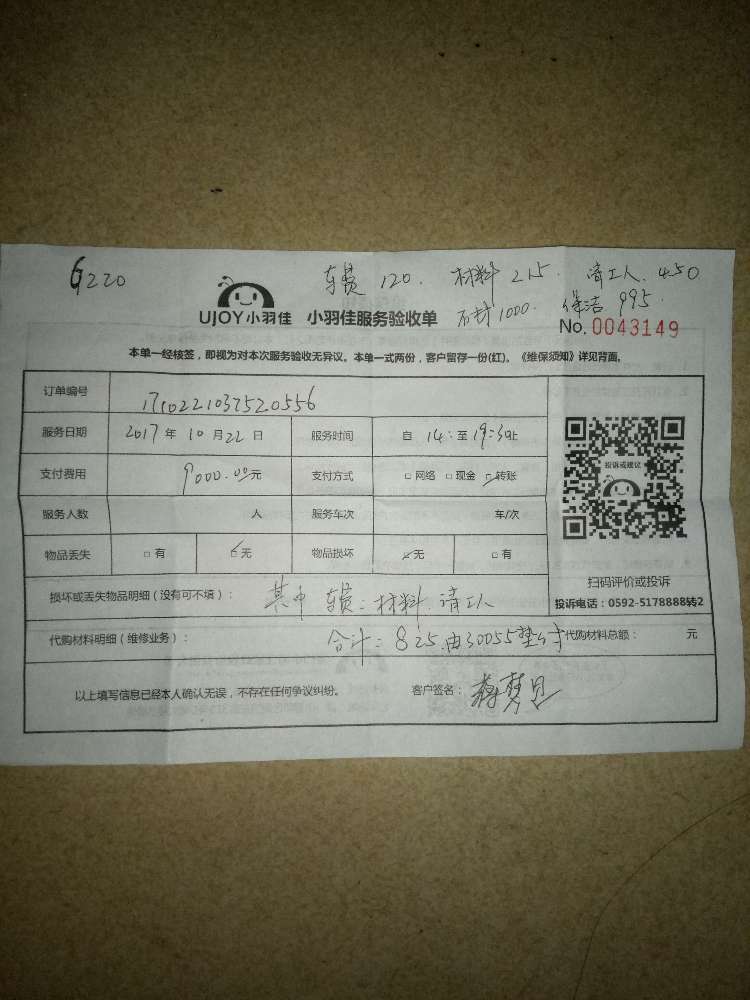 6220 车费 120. 材料 215. 请工人. 450
UJOY小羽佳 小羽佳服务验收单 1000. 保洁 995.
No. 0043149
本单一经核签，即视为对本次服务验收无异议。本单一式两份，客户留存一份(红)。《维保须知》详见背面。
订单编号 1710221037520556
服务日期 2017 年 10 月 22 日 服务时间 自 14: 至 19:30止
支付费用 9000.00元 支付方式 □网络 □现金 □转账
服务人数 人 服务车次 车/次
物品丢失 □有 □无 物品损坏 □无 □有
投诉或建议
扫码评价或投诉
投诉电话：0592-5178888转2
损坏或丢失物品明细（没有可不填）： 其中 车费：材料.请工人
代购材料明细（维修业务）： 合计：825.由30055垫付 代购材料总额： 元
以上填写信息已经本人确认无误，不存在任何争议纠纷。 客户签名：